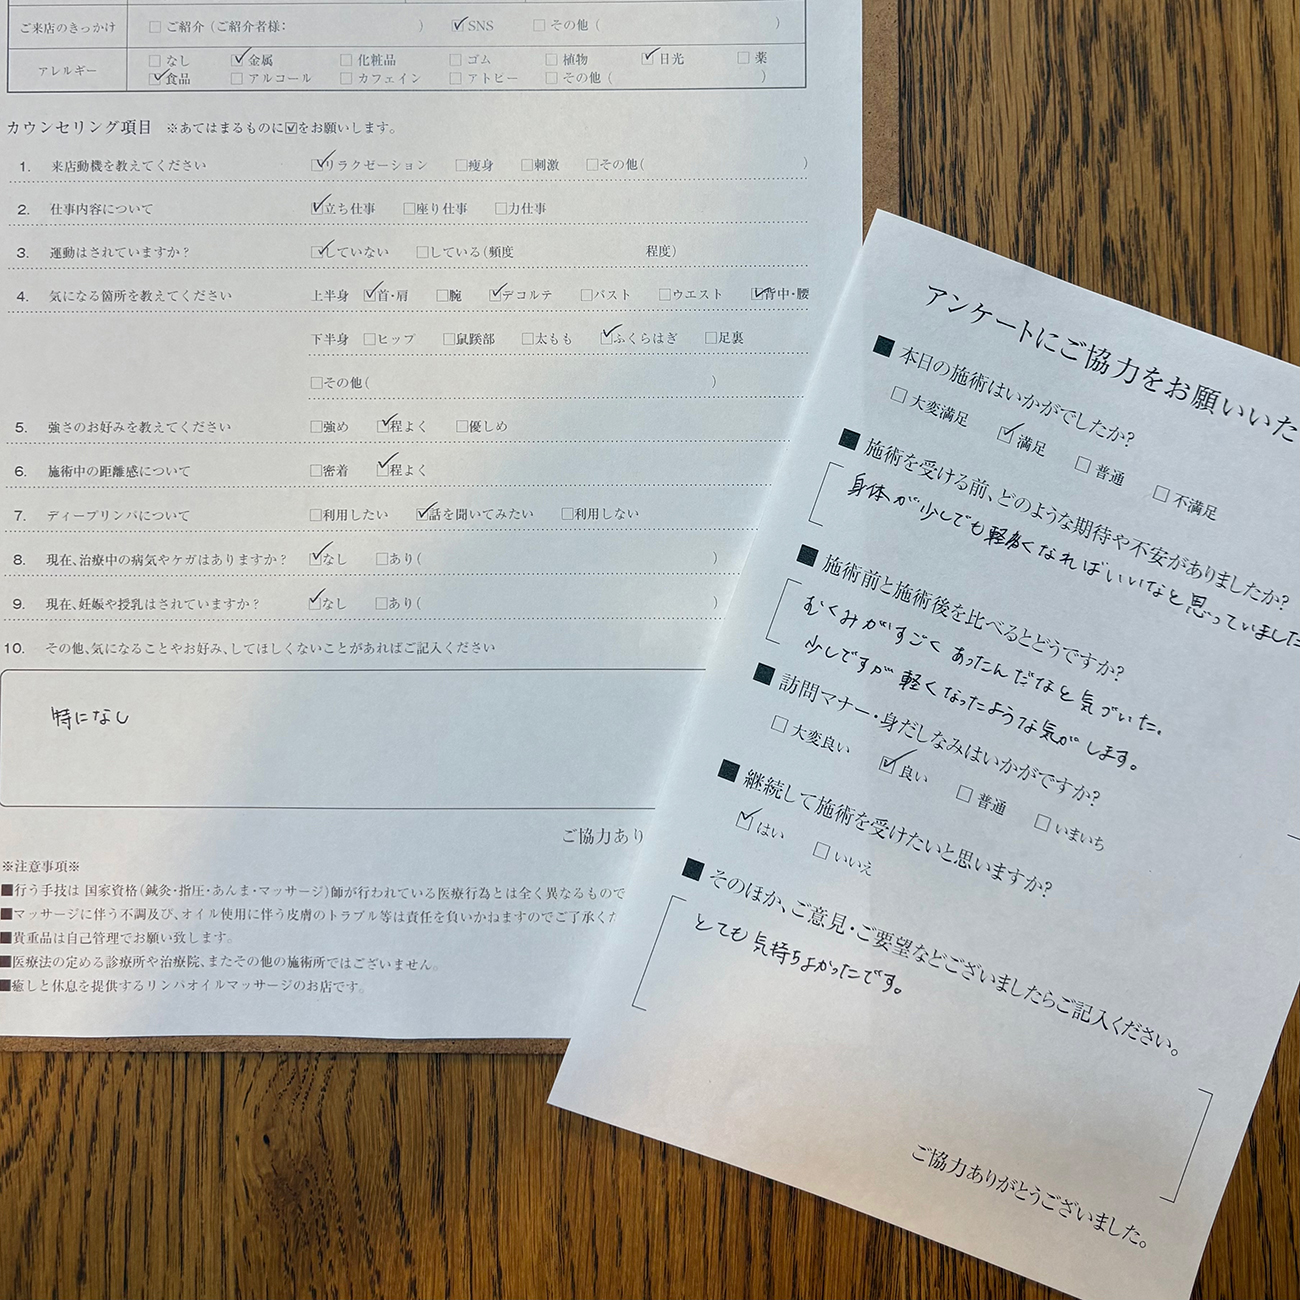 ご来店のきっかけ □ご紹介(ご紹介者様: ) ☑SNS □その他( )
アレルギー □なし ☑金属 □化粧品 □ゴム □植物 ☑日光 □薬
☑食品 □アルコール □カフェイン □アトピー □その他( )
カウンセリング項目 ※あてはまるものに☑をお願いします。
1. 来店動機を教えてください ☑リラクゼーション □痩身 □刺激 □その他( )
2. 仕事内容について ☑立ち仕事 □座り仕事 □力仕事
3. 運動はされていますか? ☑していない □している(頻度 程度)
4. 気になる箇所を教えてください 上半身 ☑首・肩 □腕 ☑デコルテ □バスト □ウエスト ☑背中・腰
下半身 □ヒップ □鼠蹊部 □太もも ☑ふくらはぎ □足裏
□その他( )
5. 強さのお好みを教えてください □強め ☑程よく □優しめ
6. 施術中の距離感について □密着 ☑程よく
7. ディープリンパについて □利用したい ☑話を聞いてみたい □利用しない
8. 現在、治療中の病気やケガはありますか? ☑なし □あり( )
9. 現在、妊娠や授乳はされていますか? ☑なし □あり( )
10. その他、気になることやお好み、してほしくないことがあればご記入ください
特になし
ご協力あり
※注意事項※
■行う手技は 国家資格(鍼灸・指圧・あんま・マッサージ)師が行われている医療行為とは全く異なるもので
■マッサージに伴う不調及び、オイル使用に伴う皮膚のトラブル等は責任を負いかねますのでご了承くだ
■貴重品は自己管理でお願い致します。
■医療法の定める診療所や治療院、またその他の施術所ではございません。
■癒しと休息を提供するリンパオイルマッサージのお店です。
アンケートにご協力をお願いいた
■本日の施術はいかがでしたか?
□大変満足 ☑満足 □普通 □不満足
■施術を受ける前、どのような期待や不安がありましたか?
身体が少しでも軽くなればいいなと思っていました
■施術前と施術後を比べるとどうですか?
むくみがすごくあったんだなと気づいた。
少しですが軽くなったような気がします。
■訪問マナー・身だしなみはいかがですか?
□大変良い ☑良い □普通 □いまいち
■継続して施術を受けたいと思いますか?
☑はい □いいえ
■そのほか、ご意見・ご要望などございましたらご記入ください。
とても気持ちよかったです。
ご協力ありがとうございました。